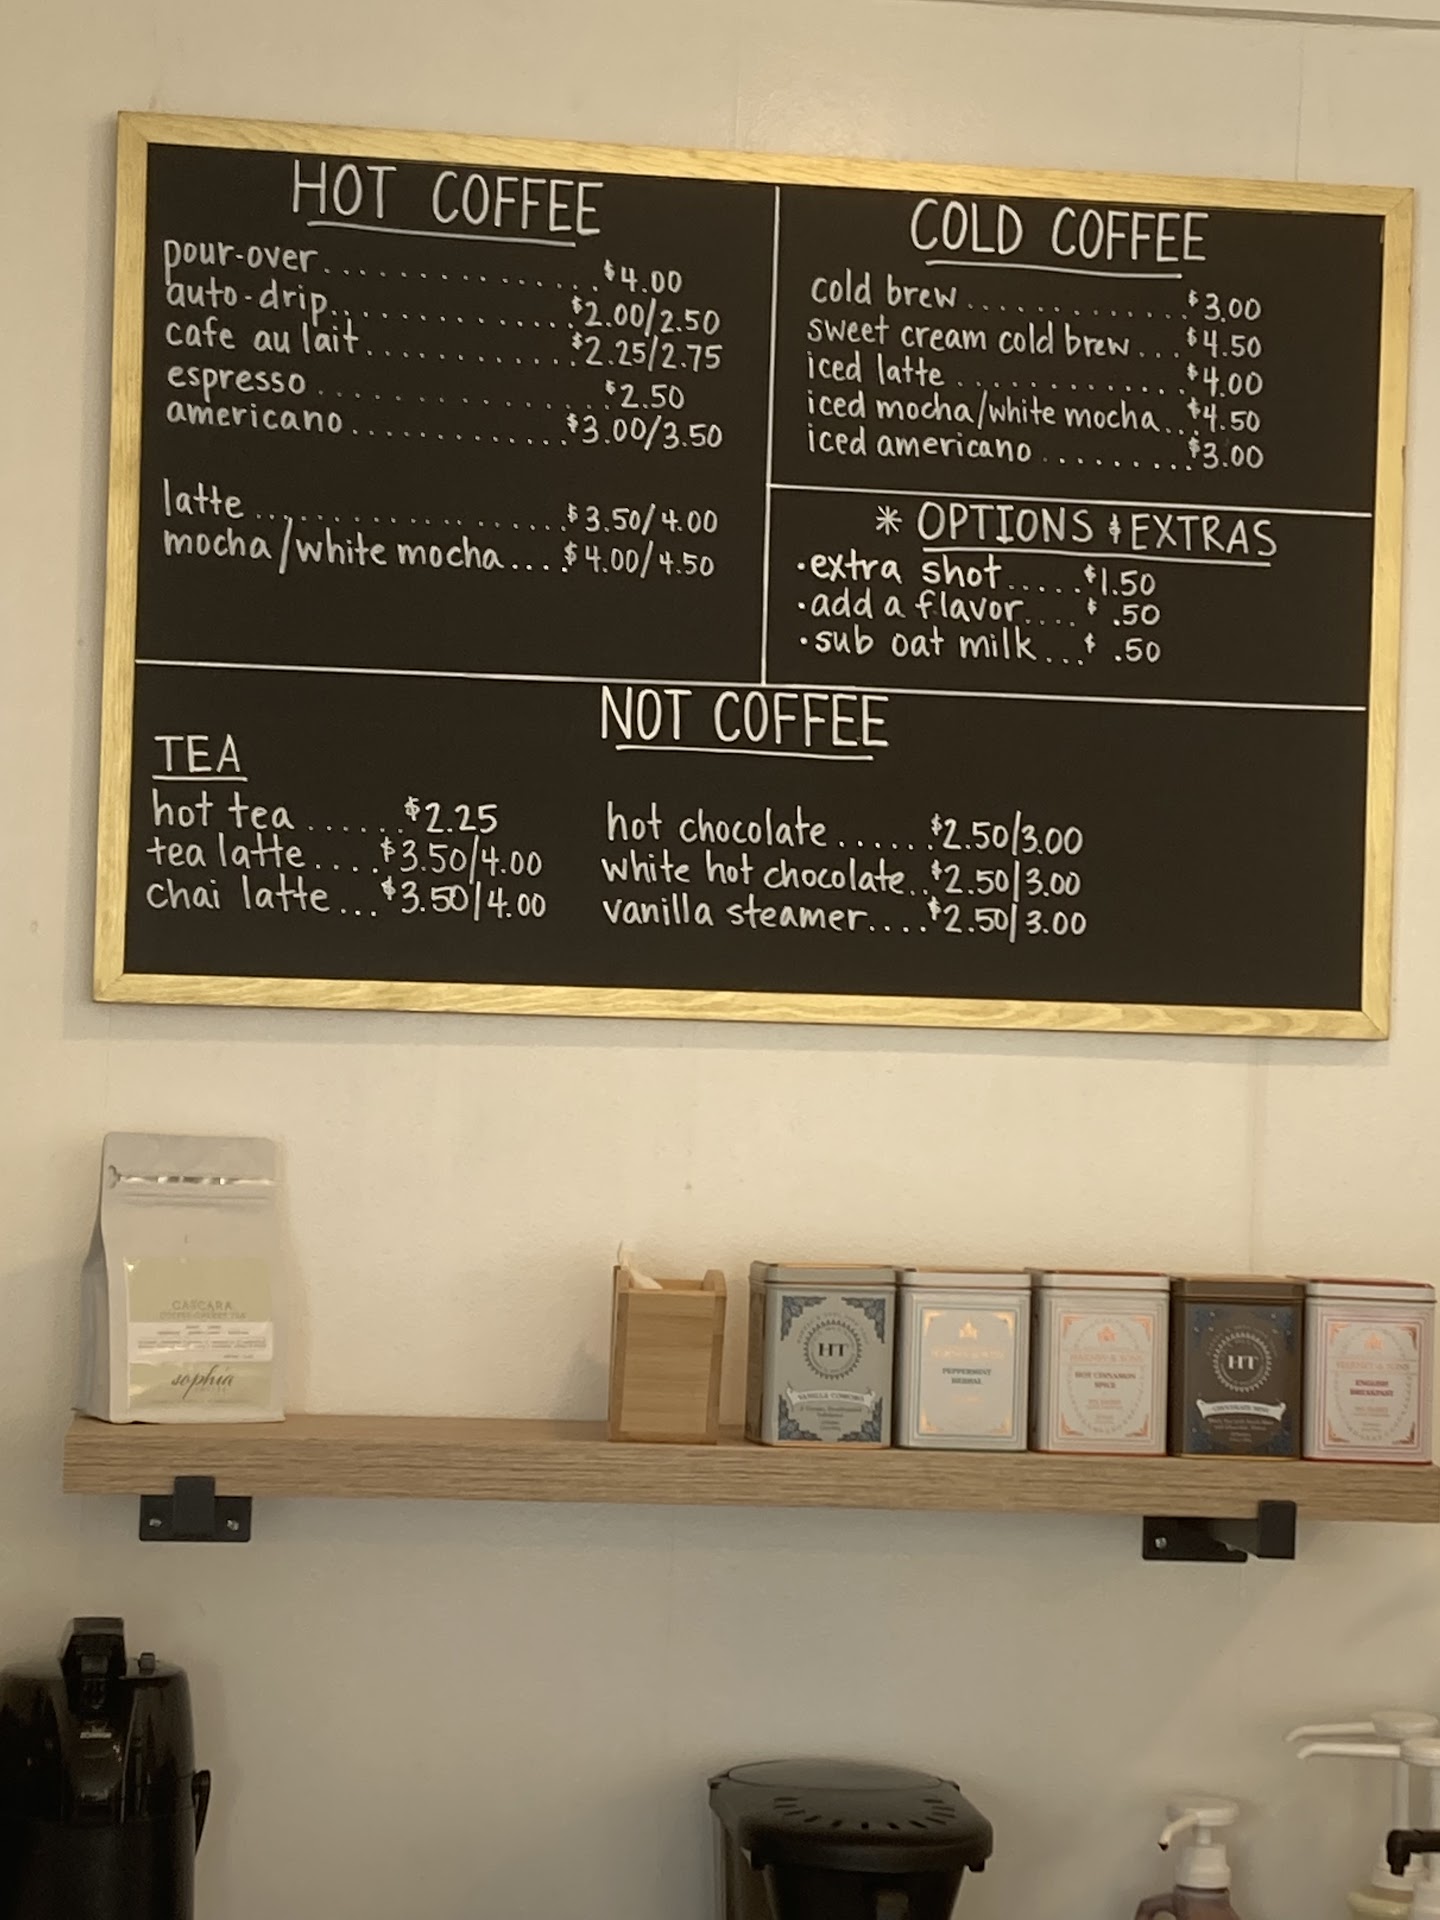 HOT COFFEE
pour-over.................$4.00
auto-drip...............$2.00/2.50
cafe au lait............$2.25/2.75
espresso................$2.50
americano.............$3.00/3.50
latte...................$3.50/4.00
mocha/white mocha....$4.00/4.50
COLD COFFEE
cold brew............$3.00
sweet cream cold brew...$4.50
iced latte............$4.00
iced mocha/white mocha...$4.50
iced americano.........$3.00
* OPTIONS & EXTRAS
·extra shot.....$1.50
·add a flavor....$ .50
·sub oat milk...$ .50
NOT COFFEE
TEA
hot tea......$2.25
tea latte....$3.50/4.00
chai latte...$3.50/4.00
hot chocolate......$2.50/3.00
white hot chocolate..$2.50/3.00
vanilla steamer....$2.50/3.00
CASCARA
sophia
HT
VANILLA COMORO
HARNEY & SONS
PEPPERMINT
HERBAL
HARNEY & SONS
HOT CINNAMON
SPICE
HT
CHOCOLATE MINT
HARNEY & SONS
ENGLISH
BREAKFAST